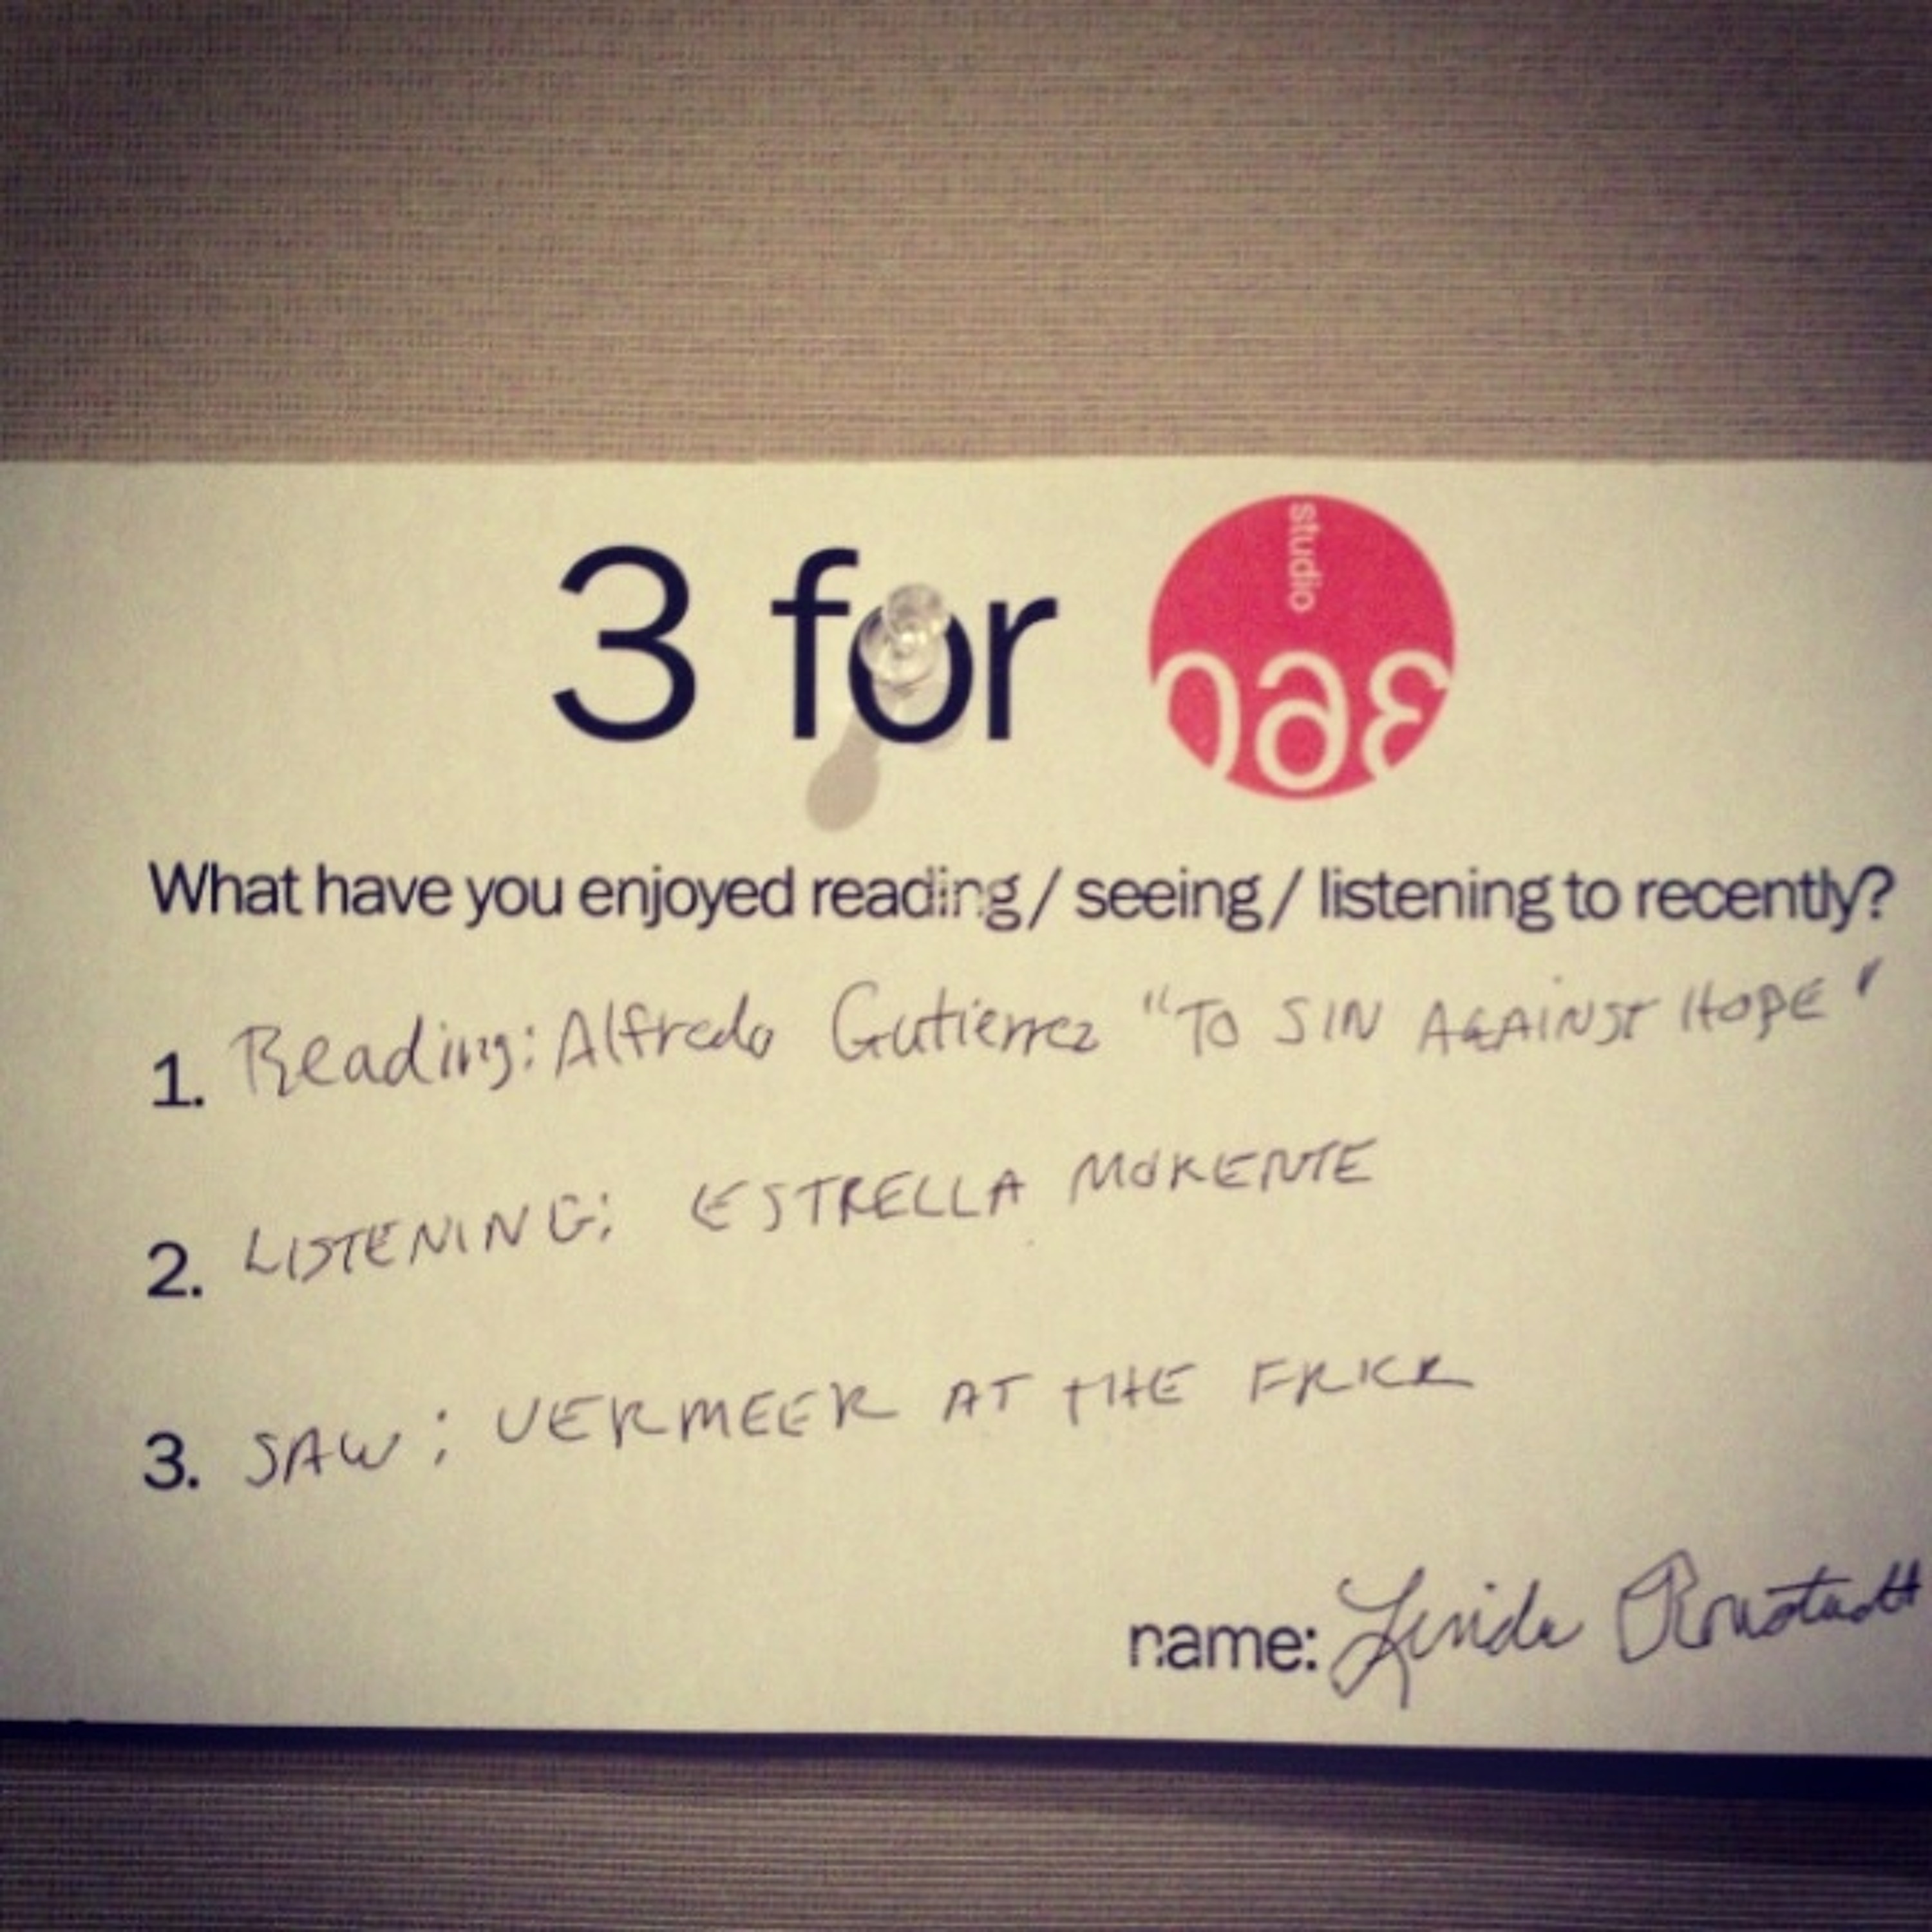 3 for studio 360
What have you enjoyed reading / seeing / listening to recently?
1. Reading: Alfredo Gutierrez "TO SIN AGAINST HOPE"
2. LISTENING: ESTRELLA MORENTE
3. SAW: VERMEER AT THE FRICK
name: Linda Ronstadt